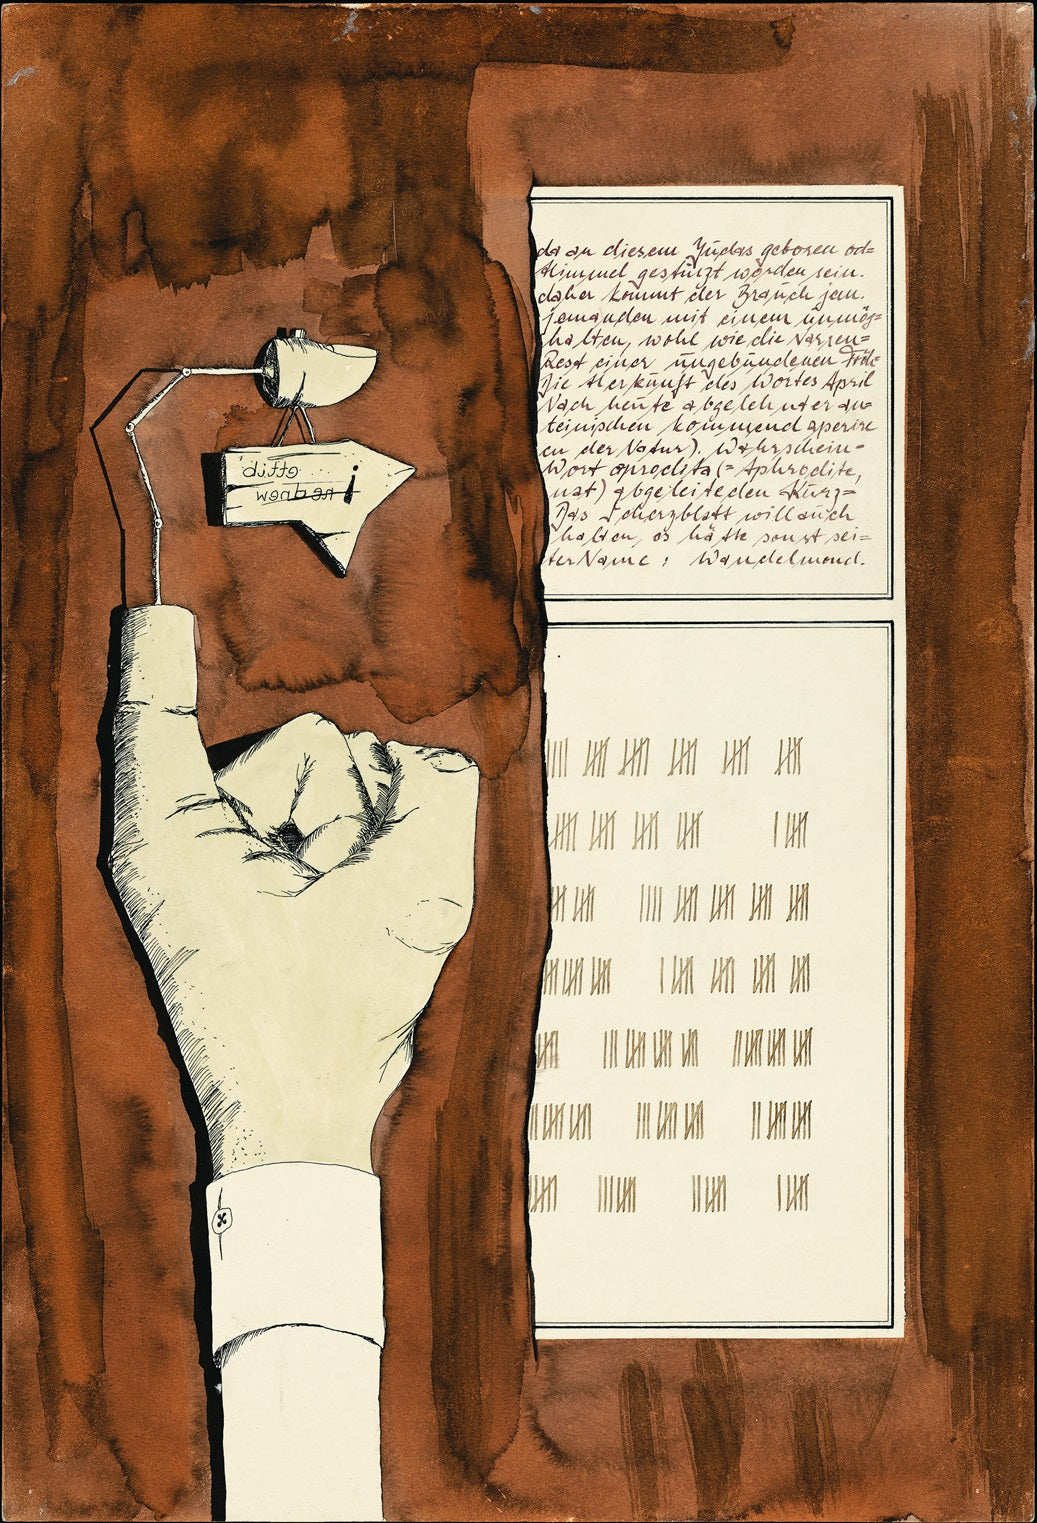 da an diesem Judas geboren od=
Himmel gestürzt worden sein.
daher kommt der Brauch jem.
jemanden mit einem unmög=
halten, wohl wie die Narren=
Rest einer ungebundenen Fröh=
Die Herkunft des Wortes April
Nach heute abgelehnter an=
teinischen kommend aperire
en der Natur). Wahrschein=
Wort aprodita (= Aphrodite,
nat) abgeleiteden Kurz=
Das Scherzblatt will auch
halten, es hätte sonst sei=
ter Name : Wandelmond.
bitte
wenden!